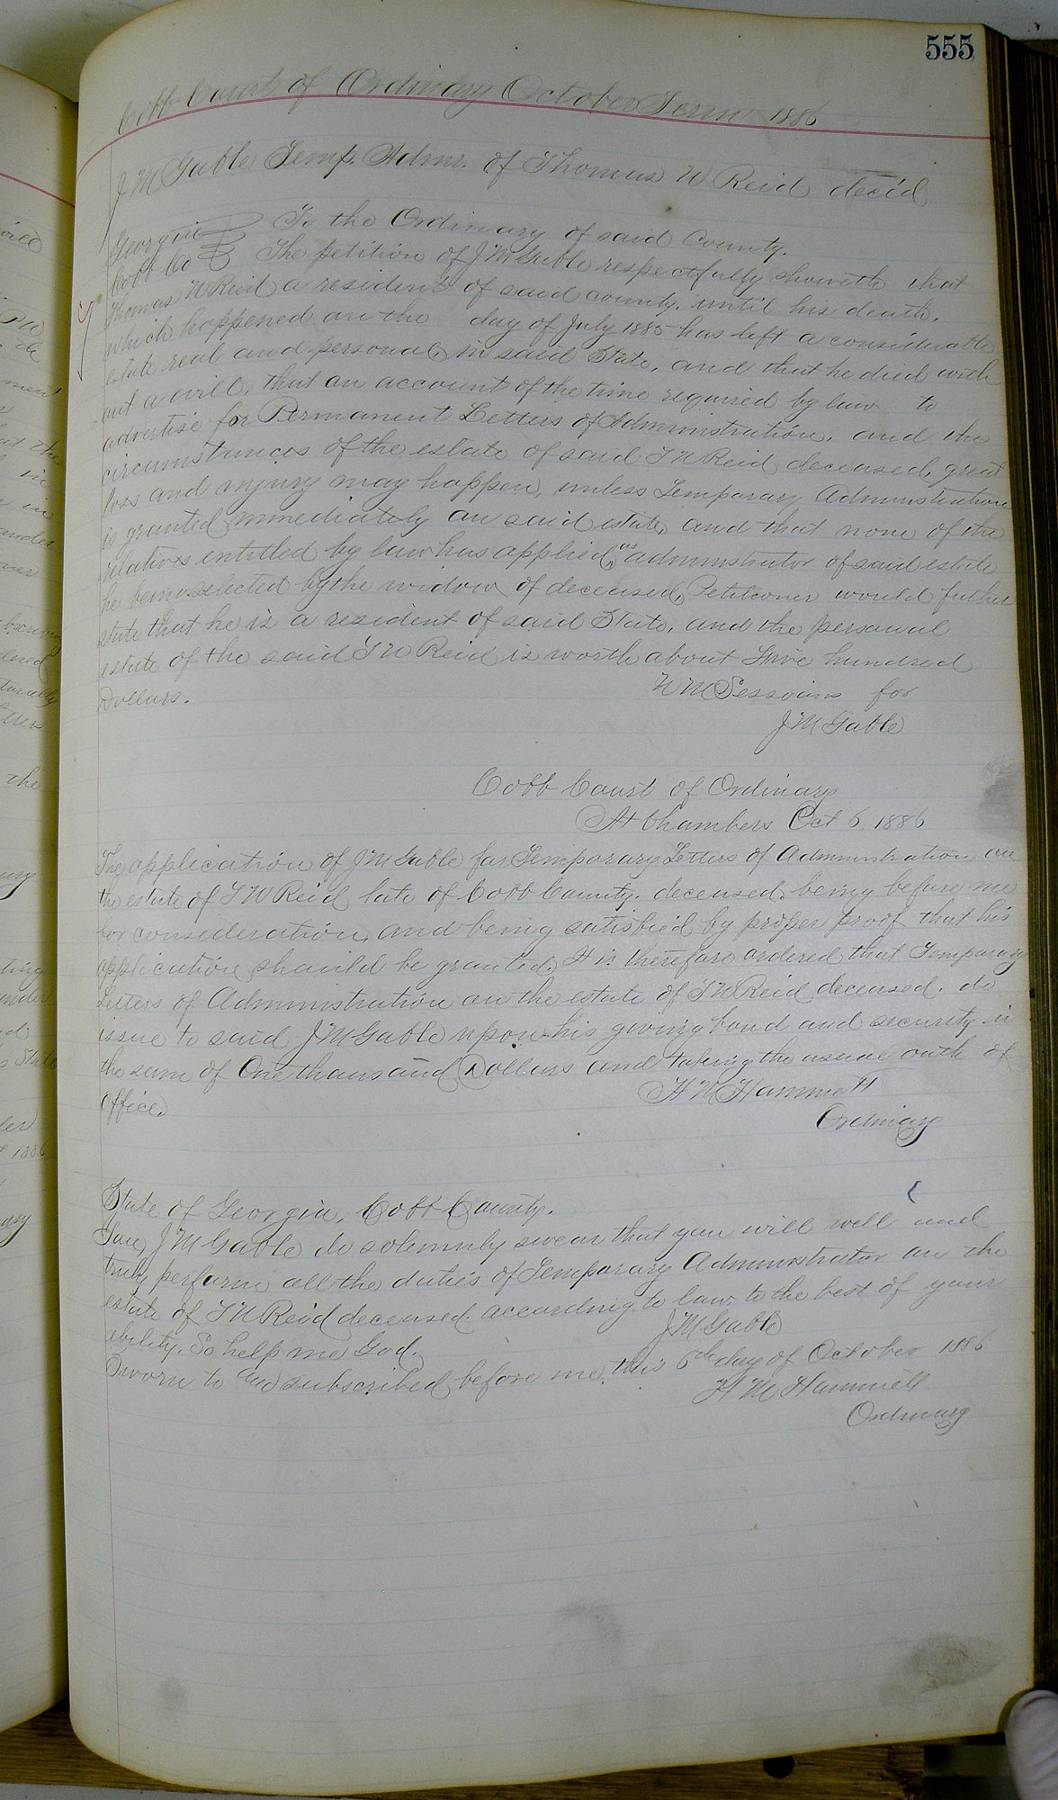 555
Cobb Court of Ordinary October Term 1886
J M Gable Temp. Admr. of Thomas W Reid dec'd
Georgia To the Ordinary of said County.
Cobb Co The petition of J M Gable respectfully sheweth that
Thomas W Reid a resident of said county. until his death.
which happened on the day of July 1885 has left a considerable
estate real and personal, in said State, and that he died with
out a will, that on account of the time required by law to
advertise for Permanent Letters of Administration, and the
circumstances of the estate of said T W Reid deceased, great
loss and injury may happen, unless Temporary Administration
is granted immediately on said estate, and that none of the
relatives entitled by law has applied, as administrator of said estate
he being selected by the widow of deceased, Petitioner would further
state that he is a resident of said State, and the personal
estate of the said T W Reid is worth about hundred
Dollars. W M Sessions for
J M Gable
Cobb Court of Ordinary
At Chambers Oct 6. 1886
The application of J M Gable for Temporary Letters of Administration on
the estate of T W Reid late of Cobb County. deceased. being before me
for consideration, and being satisfied by proper proof that his
application should be granted, It is therefore ordered that Temporary
Letters of Administration on the estate of T W Reid deceased. do
issue to said J M Gable upon his giving bond and security in
the sum of One thousand Dollars and taking the usual oath of
office. H M Hammett
Ordinary
State of Georgia, Cobb County.
You, J M Gable do solemnly swear that you will well and
truly perform all the duties of Temporary Administrator on the
estate of T W Reid deceased. according to law, to the best of your
ability. So help me God. J M Gable
Sworn to and subscribed before me, this 6th day of October 1886
H M Hammett
Ordinary